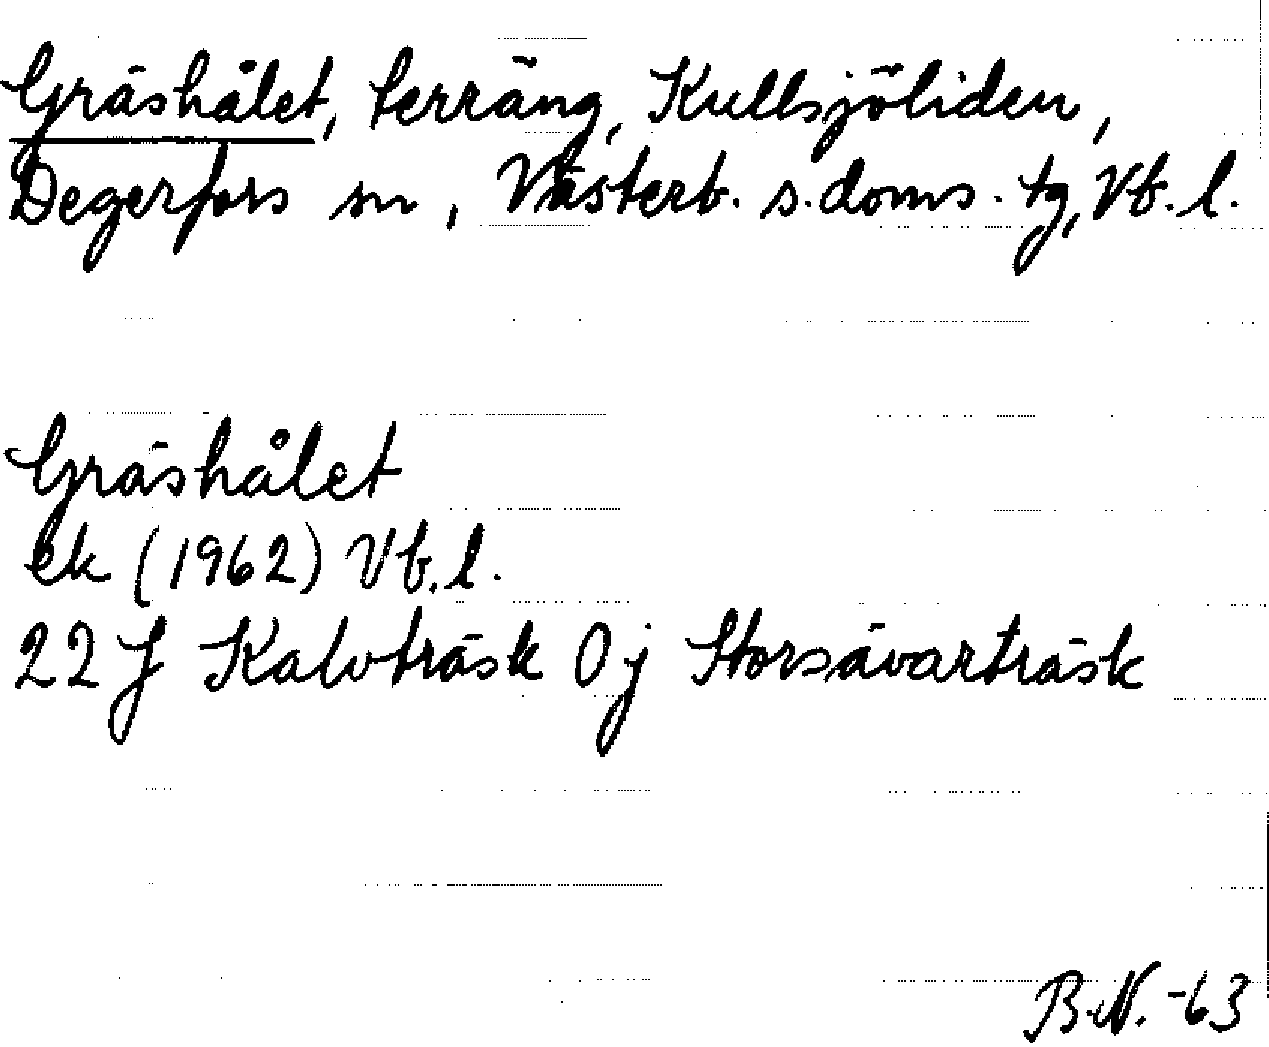 Gräshålet, terräng, Kullsjöliden,
Degerfors sn, Västerb. s. doms. tg, Vb. l.
Gräshålet
ek (1962) Vb. l.
22 J Kalvträsk 0 j Storsävarträsk
B.N. -63